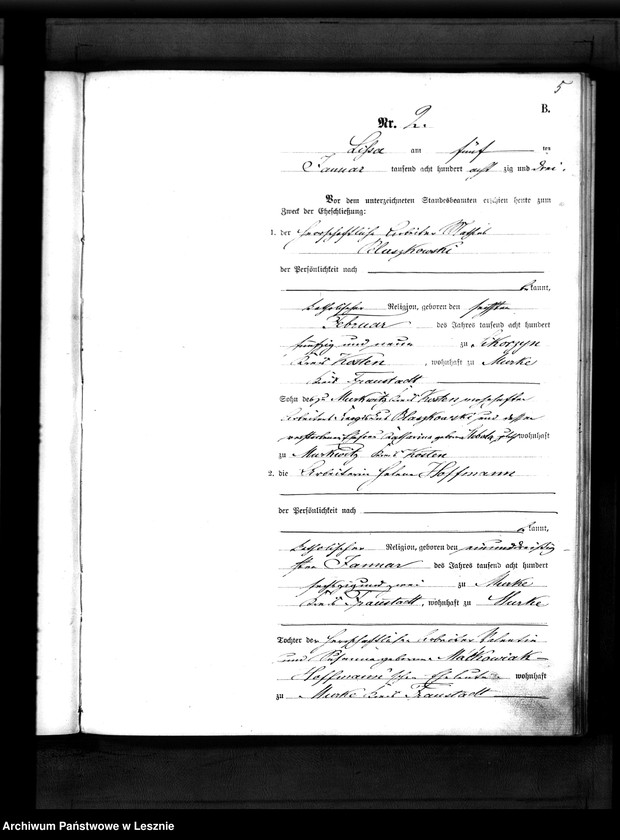 5
B.
Nr. 2.
Lissa am fünf ten
Januar tausend acht hundert acht zig und drei.
Vor dem unterzeichneten Standesbeamten erschien heute zum
Zweck der Eheschließung:
1. der herrschaftliche Arbeiter
Blaszkowski
der Persönlichkeit nach
kannt,
katholischer Religion, geboren den
Februar des Jahres tausend acht hundert
fünfzig und neun zu
Kreis Kosten, wohnhaft zu Murke
Kreis Fraustadt
Sohn des zu Murkwitz Kreis Kosten wohnhaften
Arbeiters Blaszkowski und dessen
verstorbenen Ehefrau Katharina geborene wohnhaft
zu Murkwitz Kreis Kosten
2. die Arbeiterin Helene Hoffmann
der Persönlichkeit nach
kannt,
katholischer Religion, geboren den einunddreißig-
sten Januar des Jahres tausend acht hundert
sechszig und zwei zu Murke
Kreis Fraustadt, wohnhaft zu Murke
Tochter der herrschaftlichen Arbeiter Valentin
und Susanna geborene Matkowiak-
Hoffmann'schen Eheleute wohnhaft
zu Murke Kreis Fraustadt
Archiwum Państwowe w Lesznie